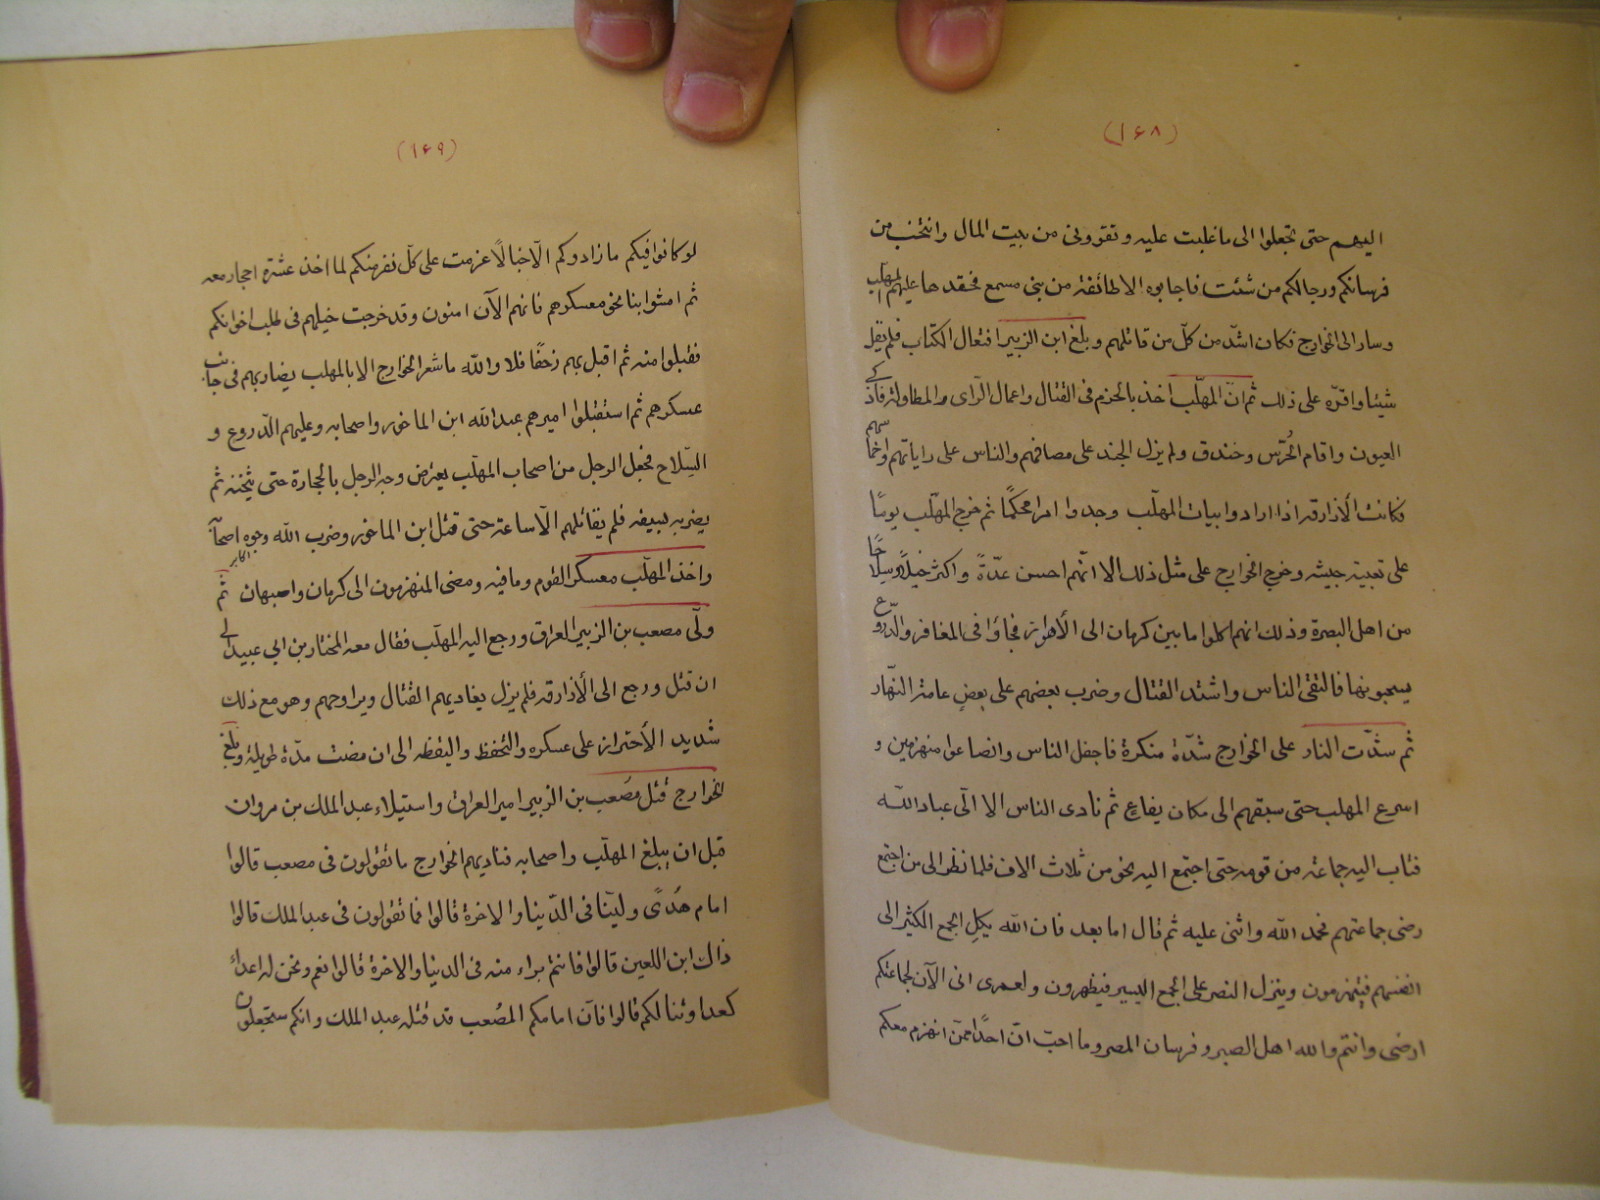 (١٦٨)
اليهم حتى تجعلوا الى ما غلبت عليه وتقووني من بيت المال وانتخب من
فرسانكم ورجالكم من شئت فاجابوه الا طائفة من بنى مسمع فحقدها عليهم المهلب
وسار الى الخوارج فكان اشدّ من كلّ من قاتلهم وبلغ ابن الزبير افتعال الكتاب فلم يقل
شيئا واقرّه على ذلك ثم انّ المهلّب اخذ بالحزم فى القتال واعمال الرّاى والمطاولة فاذكى
العيون واقام الحُرّس وخندق ولم يزل الجند على مصافهم والناس على راياتهم واخماسهم
فكانت الأذارقه اذا ارادوا بيات المهلّب وجدوا امرا محكمًا ثم خرج المهلّب يومًا
على تعبية جيشه وخرج الخوارج على مثل ذلك الا انّهم احسن عدّةً واكثر خيلاً وسلاحًا
من اهل البصرة وذلك انهم اكلوا ما بين كرمان الى الأهواز فجاؤا فى المغافر والدّروع
يسحبونها فالتقى الناس واشتد القتال وضرب بعضهم على بعضٍ عامة النّهار
ثم شدّت النار على الخوارج شدّة منكرة فاجفل الناس وانصاعوا منهزمين و
اسرع المهلب حتى سبقهم الى مكان يفاعٍ ثم نادى الناس الا الىّ عباد اللّه
فثاب اليه جماعة من قومه حتى اجتمع اليه نحو من ثلاث الاف فلما نظر الى من اجتمع
رضى جماعتهم فحمد اللّه واثنى عليه ثم قال اما بعد فان اللّه يكل الجمع الكثير الى
انفسهم فيهزمون وينزل النصر على الجمع اليسير فيظهرون ولعمرى انى الآن لجماعتكم
ارضى وانتم والله اهل الصبر وفرسان المصر وما احبّ انّ احدًا ممن انهزم معكم
(١٦٩)
لو كانوا فيكم ما زادوكم الّا خبالاً عزمت على كلّ نفر منكم لما اخذ عشرة احجار معه
ثم امشوا بنا نحو معسكرهم فانهم الآن امنون وقد خرجت خيلهم فى طلب اخوانكم
فقبلوا منه ثم اقبل بهم زحفًا فلا واللّه ما شعر الخوارج الا بالمهلب يضاربهم فى جانب
عسكرهم ثم استقبلوا اميرهم عبد اللّه ابن الماخور واصحابه وعليهم الدّروع و
السّلاح فجعل الرجل من اصحاب المهلّب يعترض وجه الرجل بالحجارة حتى يثخنه ثم
يضربه بسيفه فلم يقاتلهم الّا ساعة حتى قتل ابن الماخور وضرب اللّه وجوه اصحابه
واخذ المهلّب معسكر القوم وما فيه ومضى المنهزمون الى كرمان واصبهان ثم
ولّى مصعب بن الزبير العراق ورجع اليه المهلّب فقال معه المختار بن ابي عبيد الى
ان قتل ورجع الى الأذارقه فلم يزل يغاديهم القتال ويراوحهم وهو مع ذلك
شديد الأحتراز على عسكره والتحفظ واليقظه الى ان مضت مدّة طويلة وبلغ
الخوارج قتل مصعب بن الزبير امير العراق واستيلاء عبد الملك بن مروان
قبل ان يبلغ المهلّب واصحابه فناديهم الخوارج ما تقولون فى مصعب قالوا
امام هُدًى ولينا فى الدّنيا والاخرة قالوا فما تقولون فى عبد الملك قالوا
ذاك ابن اللعين قالوا فانتم براء منه فى الدنيا والاخرة قالوا نعم ونحن له اعداءً
كعداوتنا لكم قالوا فانّ امامكم المصعب قد قتله عبد الملك وانكم ستجعلون